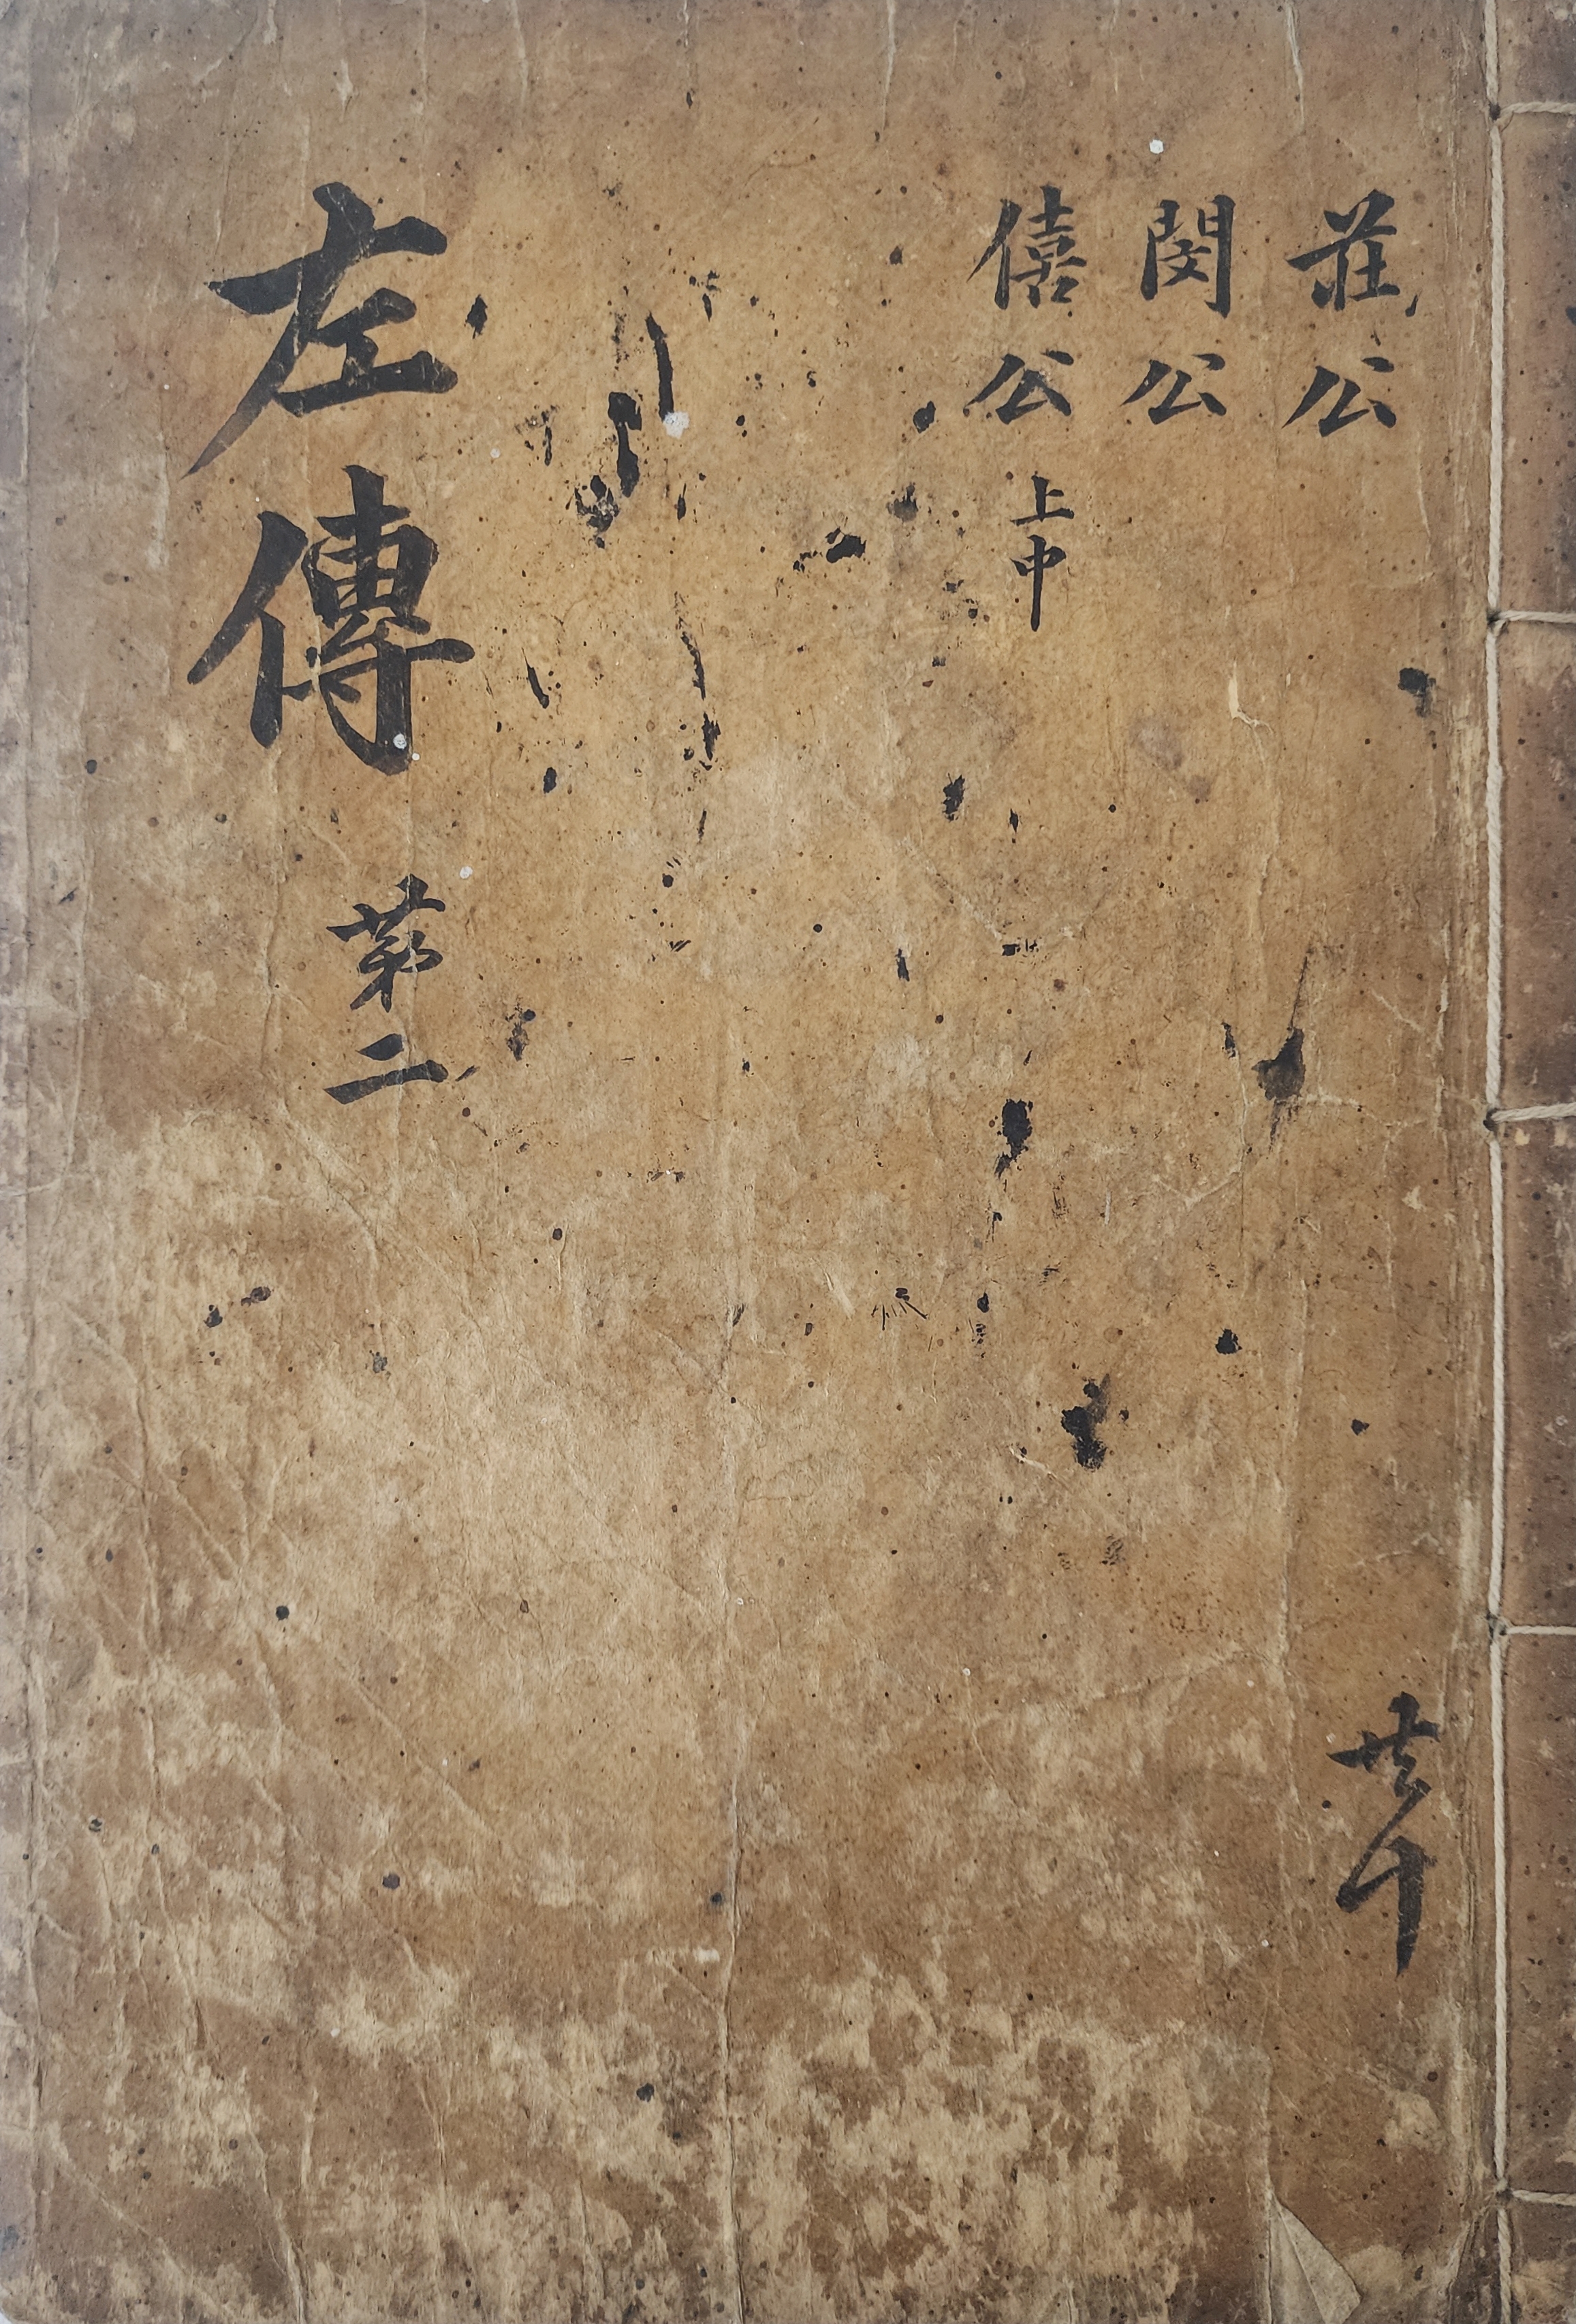 莊公
閔公
僖公 上中
左傳 第二
共十